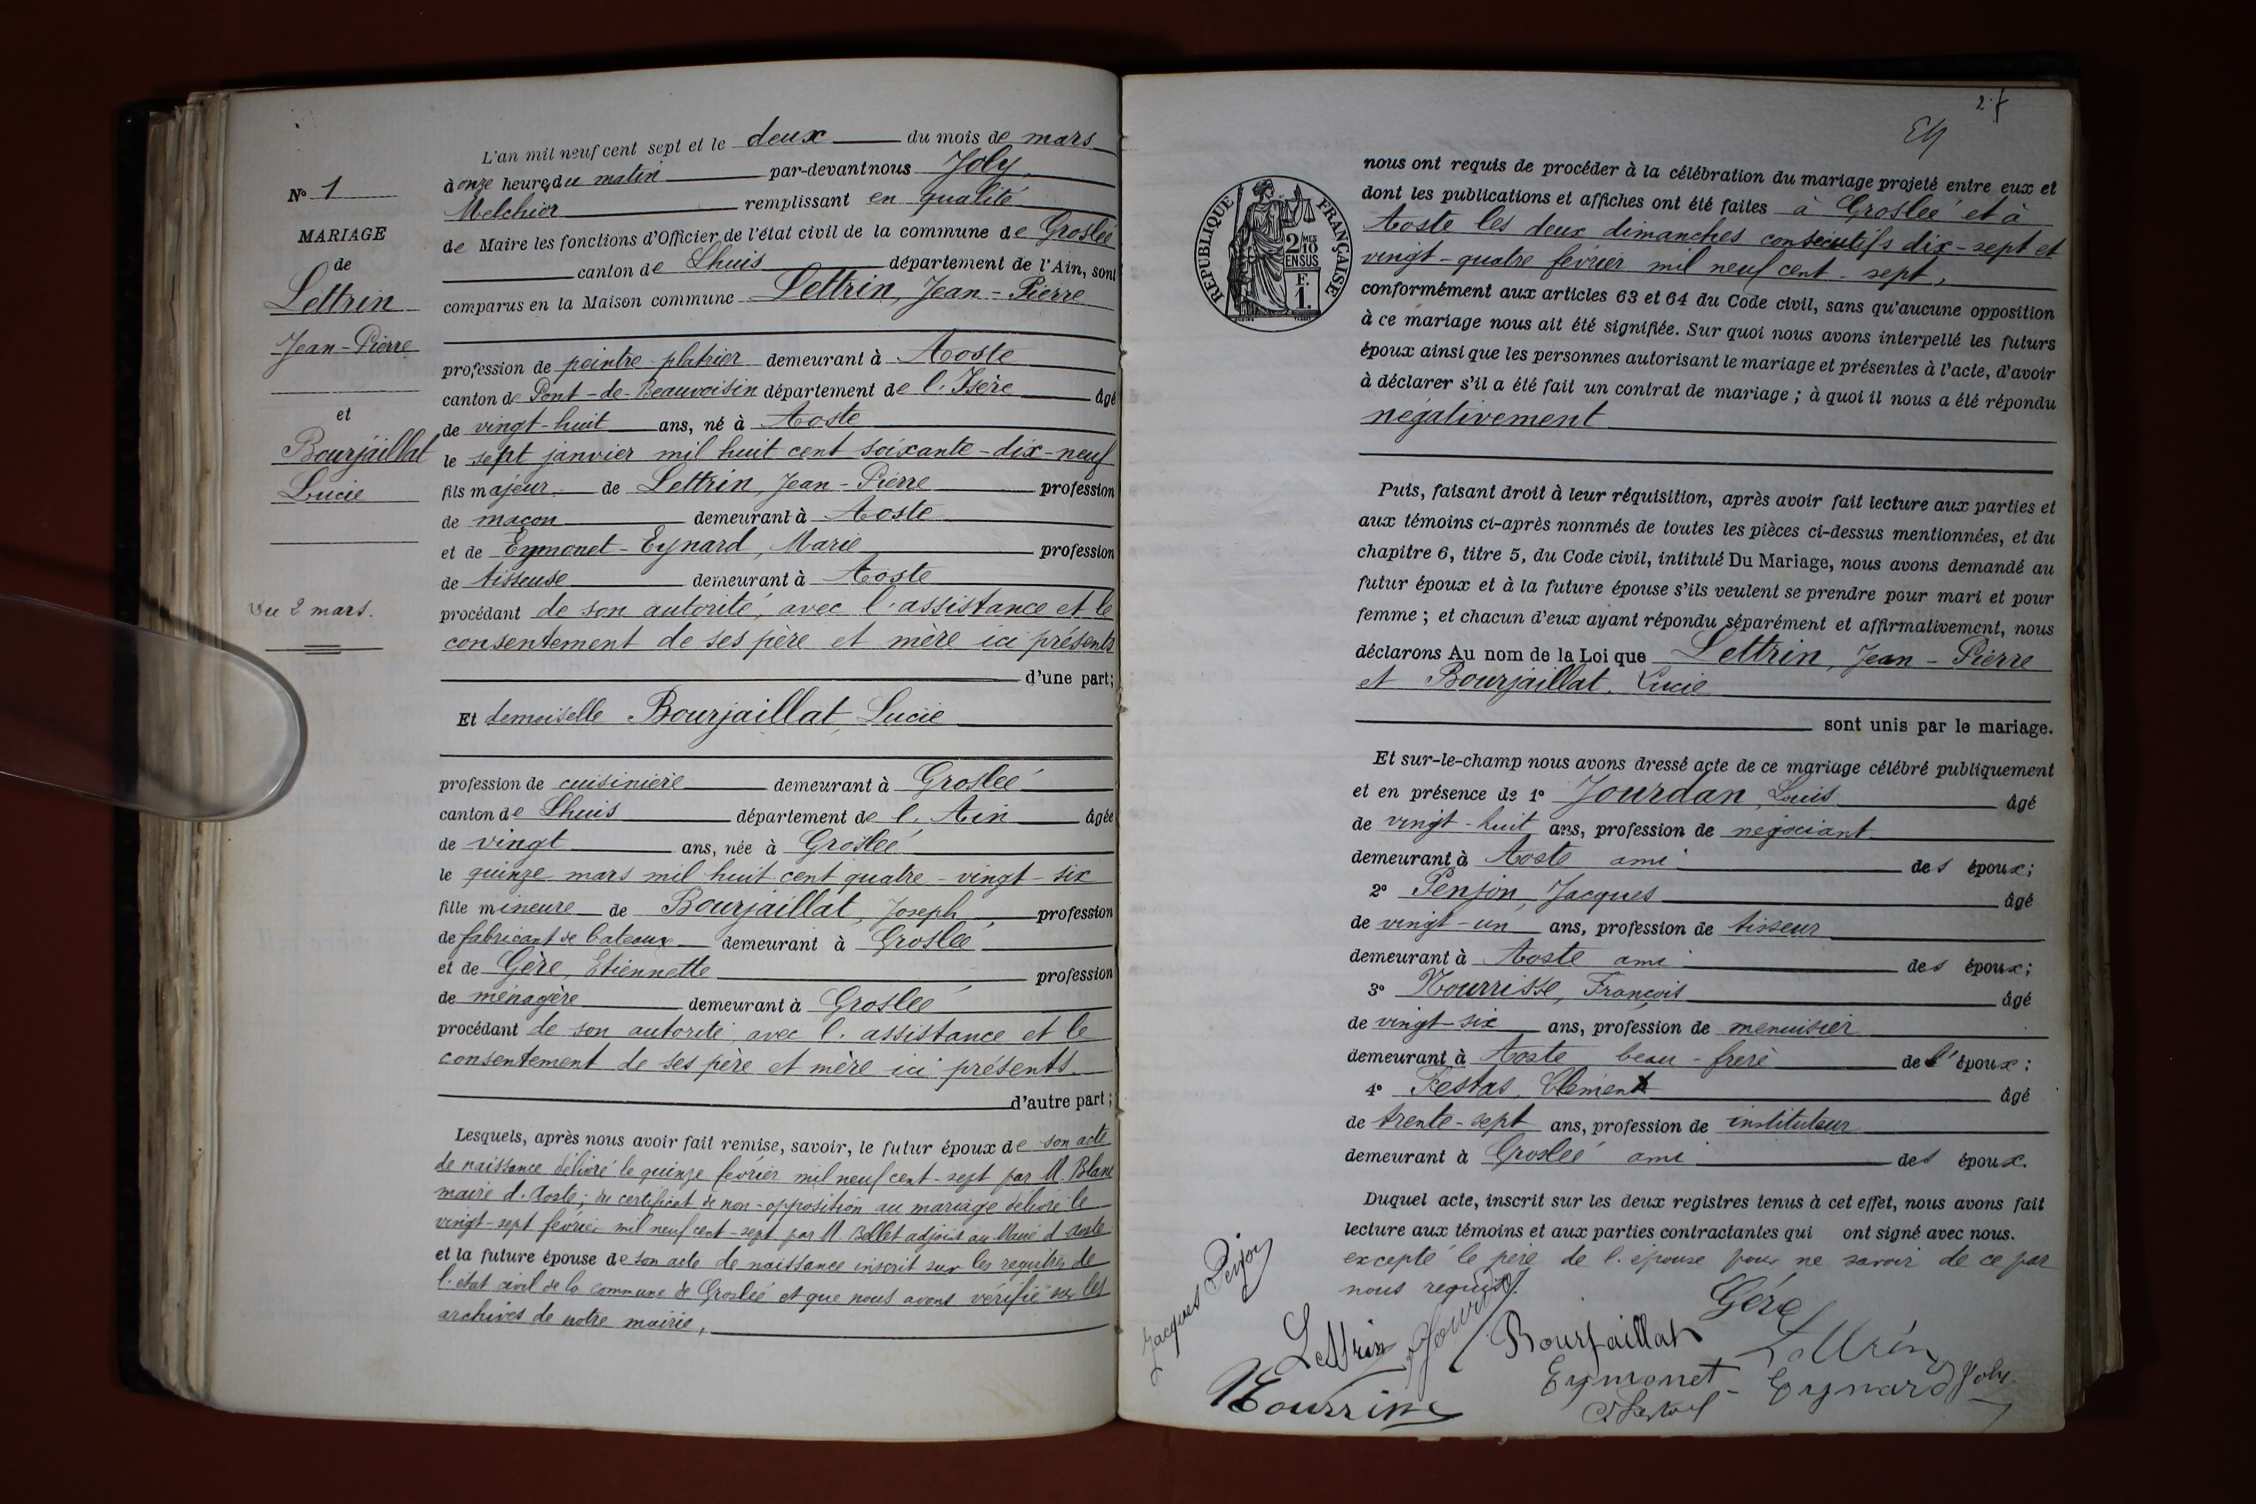 N° 1
MARIAGE
de
Lettrin
Jean-Pierre
et
Bourjaillat
Lucie
Du 2 mars.
L'an mil neuf cent sept et le deux du mois de mars
à onze heures du matin par-devant nous Joly,
Melchior remplissant en qualité
de Maire les fonctions d'Officier de l'état civil de la commune de Groslée
canton de Lhuis département de l'Ain, sont
comparus en la Maison commune Lettrin, Jean-Pierre
profession de peintre-plâtrier demeurant à Aoste
canton de Pont-de-Beauvoisin département de l'Isère âgé
de vingt-huit ans, né à Aoste
le sept janvier mil huit cent soixante-dix-neuf
fils majeur de Lettrin, Jean-Pierre profession
de maçon demeurant à Aoste
et de Eymonet-Eynard, Marie profession
de tisseuse demeurant à Aoste
procédant de son autorité, avec l'assistance et le
consentement de ses père et mère ici présents
d'une part;
Et demoiselle Bourjaillat, Lucie
profession de cuisinière demeurant à Groslée
canton de Lhuis département de l'Ain âgée
de vingt ans, née à Groslée
le quinze mars mil huit cent quatre-vingt-six
fille mineure de Bourjaillat, Joseph profession
de fabricant de bateaux demeurant à Groslée
et de Gère, Etiennette profession
de ménagère demeurant à Groslée
procédant de son autorité, avec l'assistance et le
consentement de ses père et mère ici présents
d'autre part;
Lesquels, après nous avoir fait remise, savoir, le futur époux de son acte
de naissance délivré le quinze février mil neuf cent-sept par M. Blanc
maire d'Aoste; du certificat de non-opposition au mariage délivré le
vingt-sept février mil neuf cent-sept par M. Bellet adjoint au Maire d'Aoste
et la future épouse de son acte de naissance inscrit sur les registres de
l'état civil de la commune de Groslée et que nous avons vérifié sur les
archives de notre mairie,
RÉPUBLIQUE FRANÇAISE
2 MES 10
EN SUS
F.
1.
nous ont requis de procéder à la célébration du mariage projeté entre eux et
dont les publications et affiches ont été faites à Groslée et à
Aoste les deux dimanches consécutifs dix-sept et
vingt-quatre février mil neuf cent-sept,
conformément aux articles 63 et 64 du Code civil, sans qu'aucune opposition
à ce mariage nous ait été signifiée. Sur quoi nous avons interpellé les futurs
époux ainsi que les personnes autorisant le mariage et présentes à l'acte, d'avoir
à déclarer s'il a été fait un contrat de mariage; à quoi il nous a été répondu
négativement
Puis, faisant droit à leur réquisition, après avoir fait lecture aux parties et
aux témoins ci-après nommés de toutes les pièces ci-dessus mentionnées, et du
chapitre 6, titre 5, du Code civil, intitulé Du Mariage, nous avons demandé au
futur époux et à la future épouse s'ils veulent se prendre pour mari et pour
femme; et chacun d'eux ayant répondu séparément et affirmativement, nous
déclarons Au nom de la Loi que Lettrin, Jean-Pierre
et Bourjaillat, Lucie
sont unis par le mariage.
Et sur-le-champ nous avons dressé acte de ce mariage célébré publiquement
et en présence de 1° Jourdan, Louis âgé
de vingt-huit ans, profession de négociant
demeurant à Aoste ami des époux;
2° Penjon, Jacques âgé
de vingt-un ans, profession de tisseur
demeurant à Aoste ami des époux;
3° Nourrisse, François âgé
de vingt-six ans, profession de menuisier
demeurant à Aoste beau-frère de l'époux;
4° Festas, Clément âgé
de trente-sept ans, profession de instituteur
demeurant à Groslée ami des époux.
Duquel acte, inscrit sur les deux registres tenus à cet effet, nous avons fait
lecture aux témoins et aux parties contractantes qui ont signé avec nous.
excepté le père de l'épouse pour ne savoir de ce par
nous requis.
Gére
Jacques Penjon
Lettrin
Bourjaillat
Lettrin
Eymonet-Eynard
Joly